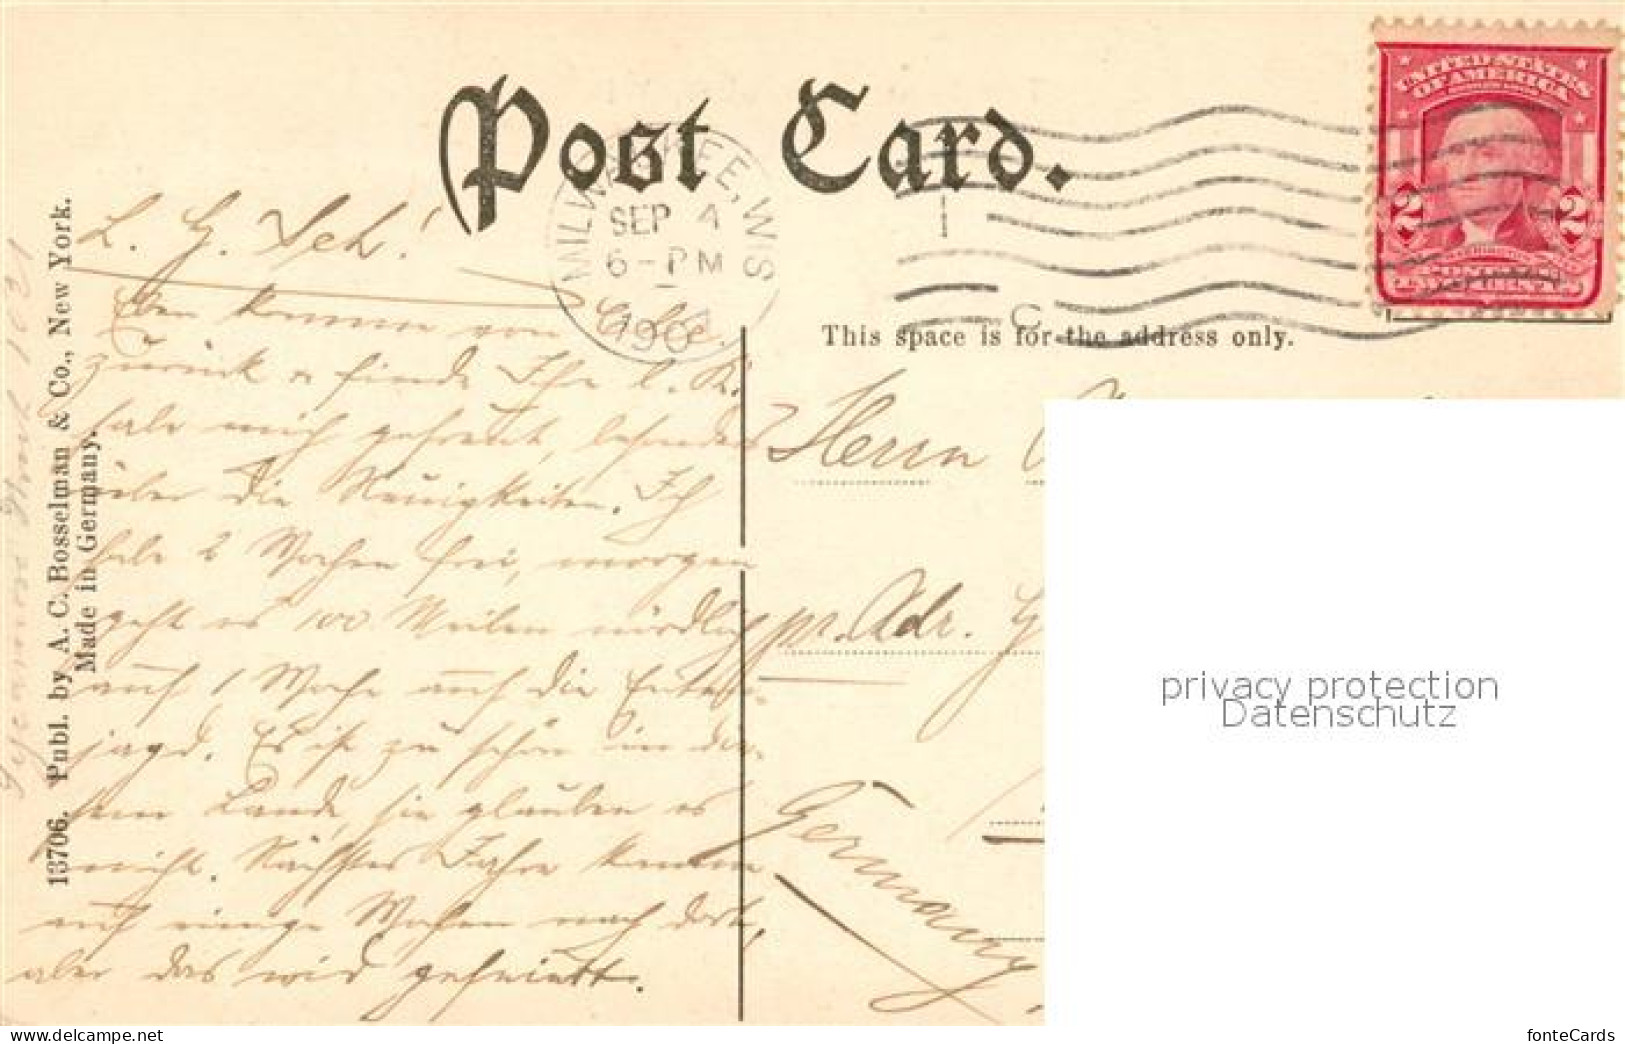 Post Card.
MILWAUKEE, WIS
SEP 4
6-PM
190
UNITED STATES
OF AMERICA
2 2
TWO CENTS
This space is for the address only.
13706. Publ. by A. C. Bosselman & Co., New York.
Made in Germany.
L. G. Sch!
Eben komme von
zurück u finde Ihre l. K.
habe mich gefreut, besonders
über die Neuigkeiten. Ich
habe 2 Wochen frei, morgen
geht es 100 Meilen nördlich
auf 1 Woche auf die Enten-
jagd. Es ist zu schön in die-
sem Lande, sie glauben es
nicht. Nächstes Jahr komme
auf einige Wochen nach dort,
aber das wird gefeiert.
Herrn
pr. Adr. G
Germany
privacy protection
Datenschutz
fonteCards